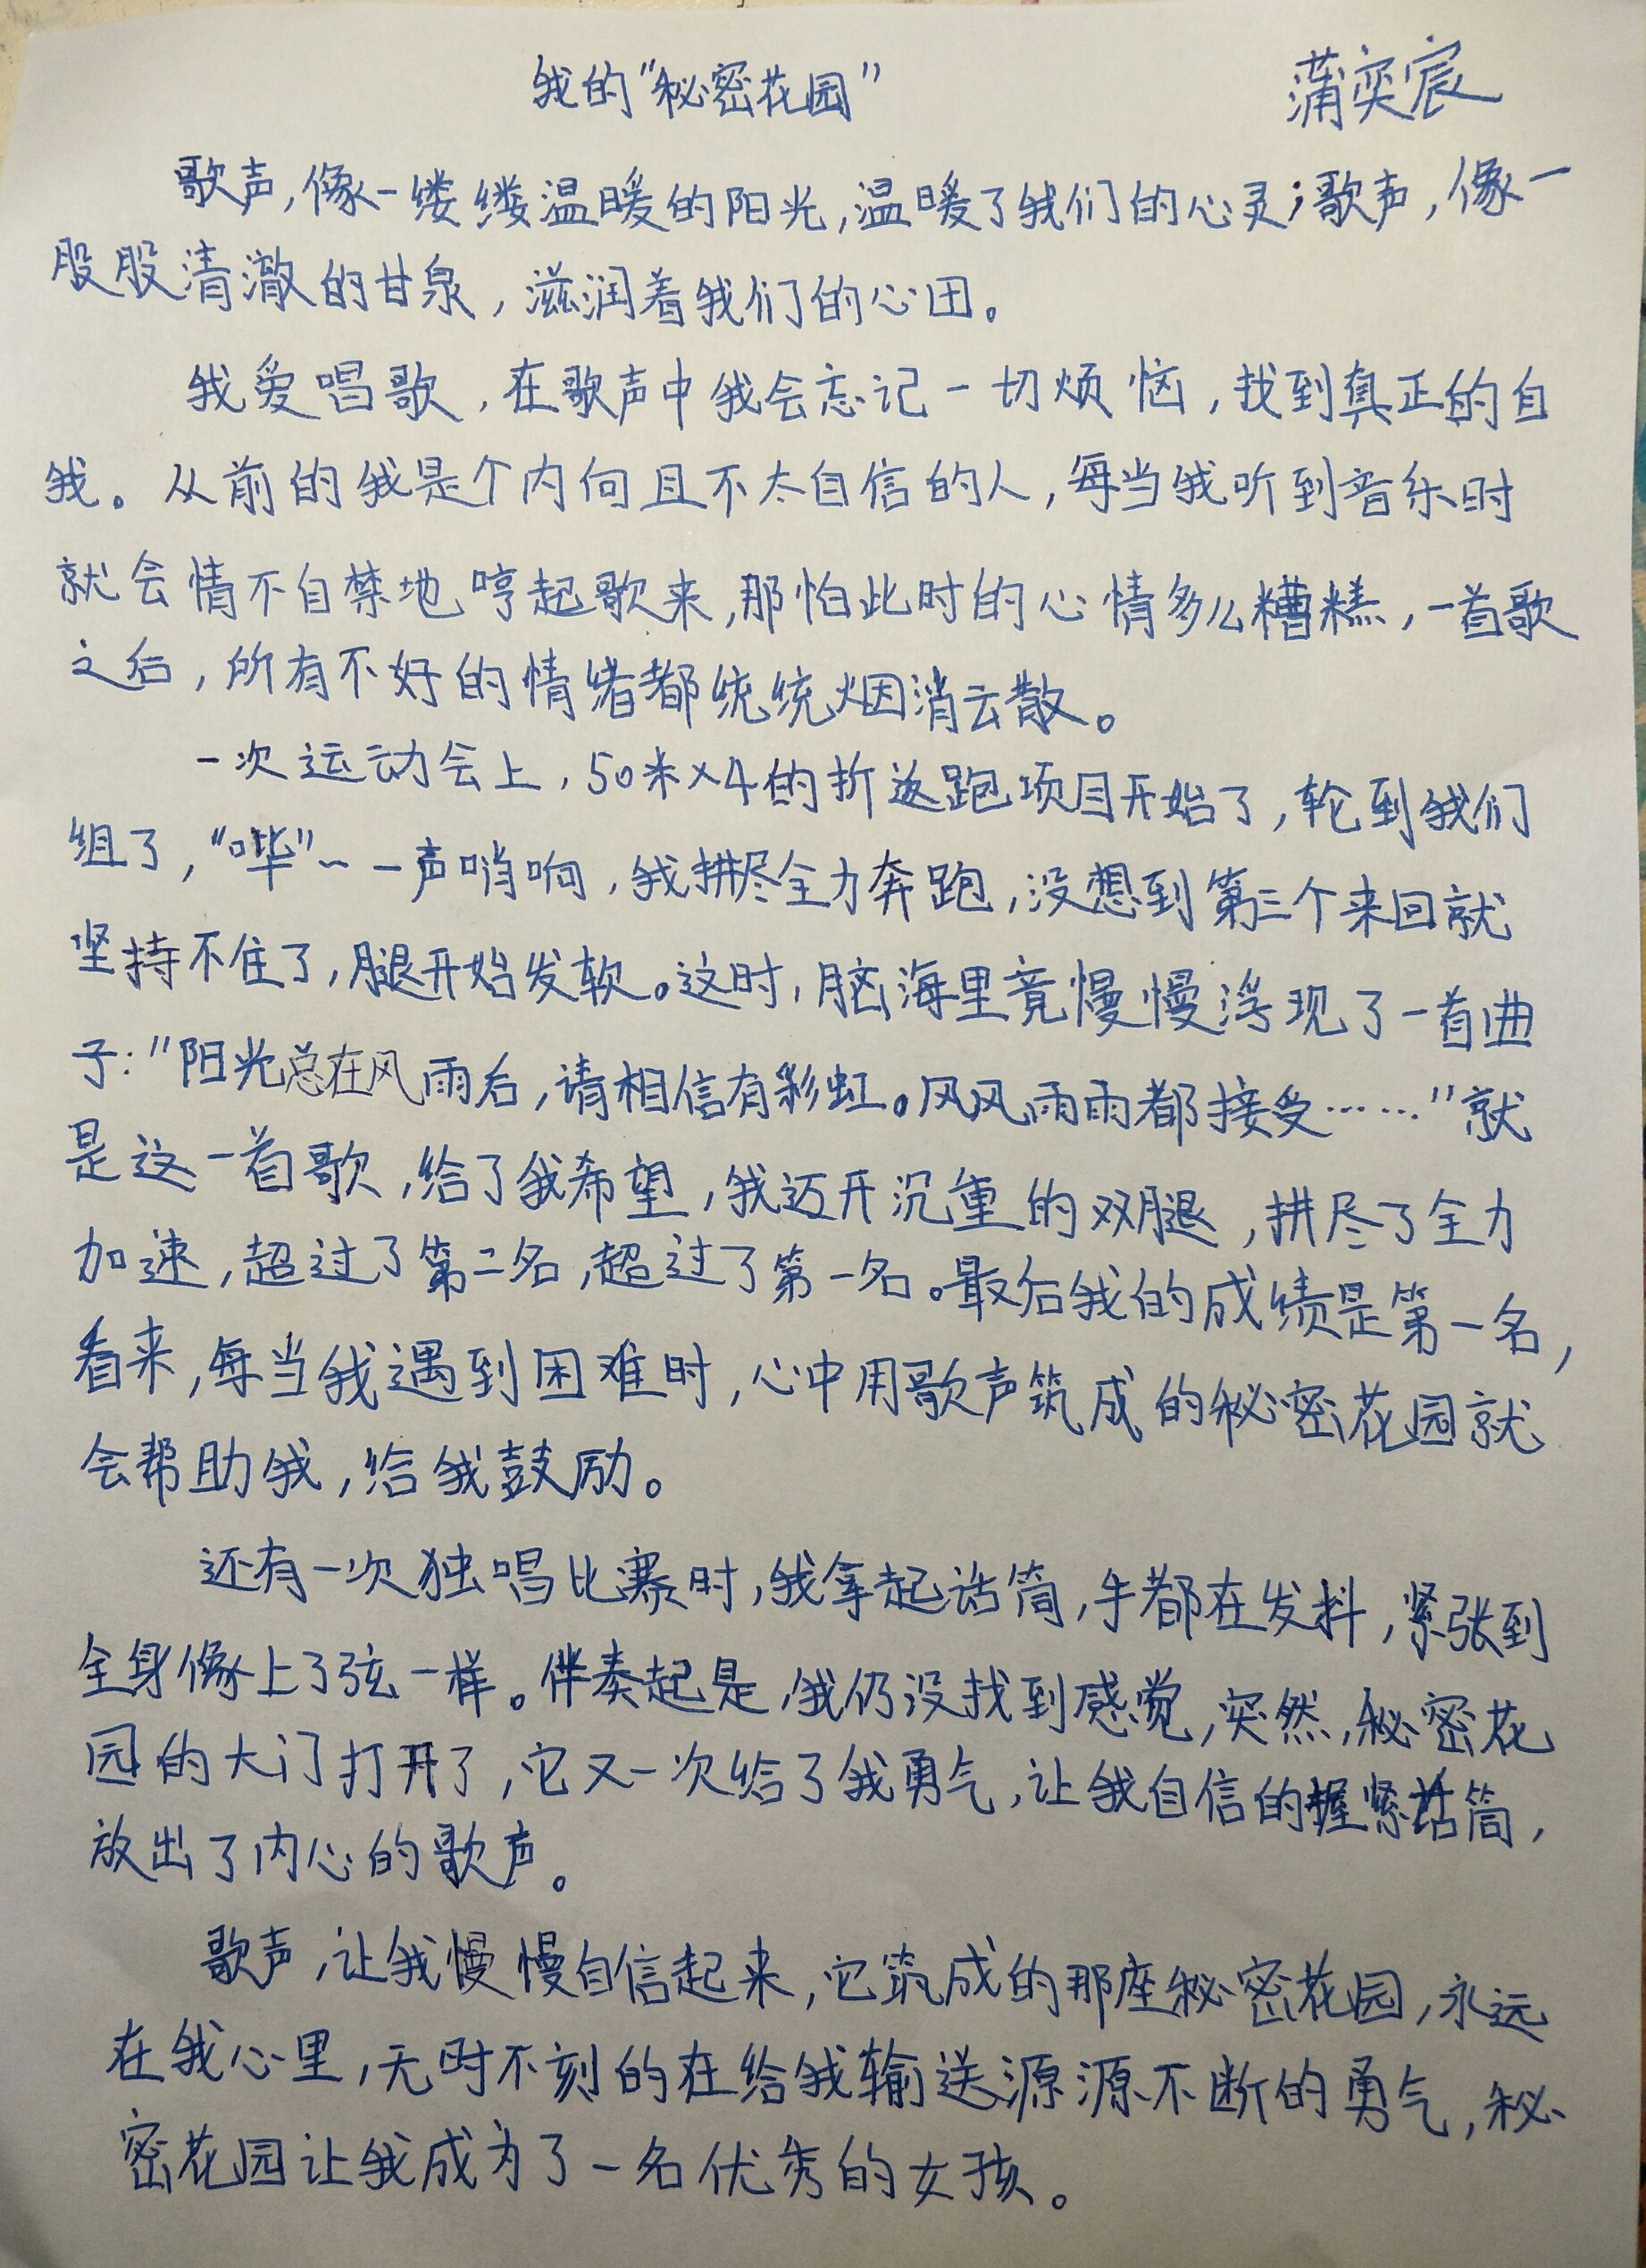 我的"秘密花园" 蒲奕宸
歌声,像一缕缕温暖的阳光,温暖了我们的心灵;歌声,像一
股股清澈的甘泉,滋润着我们的心田。
我爱唱歌,在歌声中我会忘记一切烦恼,找到真正的自
我。从前的我是个内向且不太自信的人,每当我听到音乐时
就会情不自禁地哼起歌来,那怕此时的心情多么糟糕,一首歌
之后,所有不好的情绪都统统烟消云散。
一次运动会上,50米×4的折返跑项目开始了,轮到我们
组了,"哔"~一声哨响,我拼尽全力奔跑,没想到第三个来回就
坚持不住了,腿开始发软。这时,脑海里竟慢慢浮现了一首曲
子:"阳光总在风雨后,请相信有彩虹。风风雨雨都接受……"就
是这一首歌,给了我希望,我迈开沉重的双腿,拼尽了全力
加速,超过了第二名,超过了第一名。最后我的成绩是第一名,
看来,每当我遇到困难时,心中用歌声筑成的秘密花园就
会帮助我,给我鼓励。
还有一次独唱比赛时,我拿起话筒,手都在发抖,紧张到
全身像上了弦一样。伴奏起是,我仍没找到感觉,突然,秘密花
园的大门打开了,它又一次给了我勇气,让我自信的握紧话筒,
放出了内心的歌声。
歌声,让我慢慢自信起来,它筑成的那座秘密花园,永远
在我心里,无时不刻的在给我输送源源不断的勇气,秘
密花园让我成为了一名优秀的女孩。